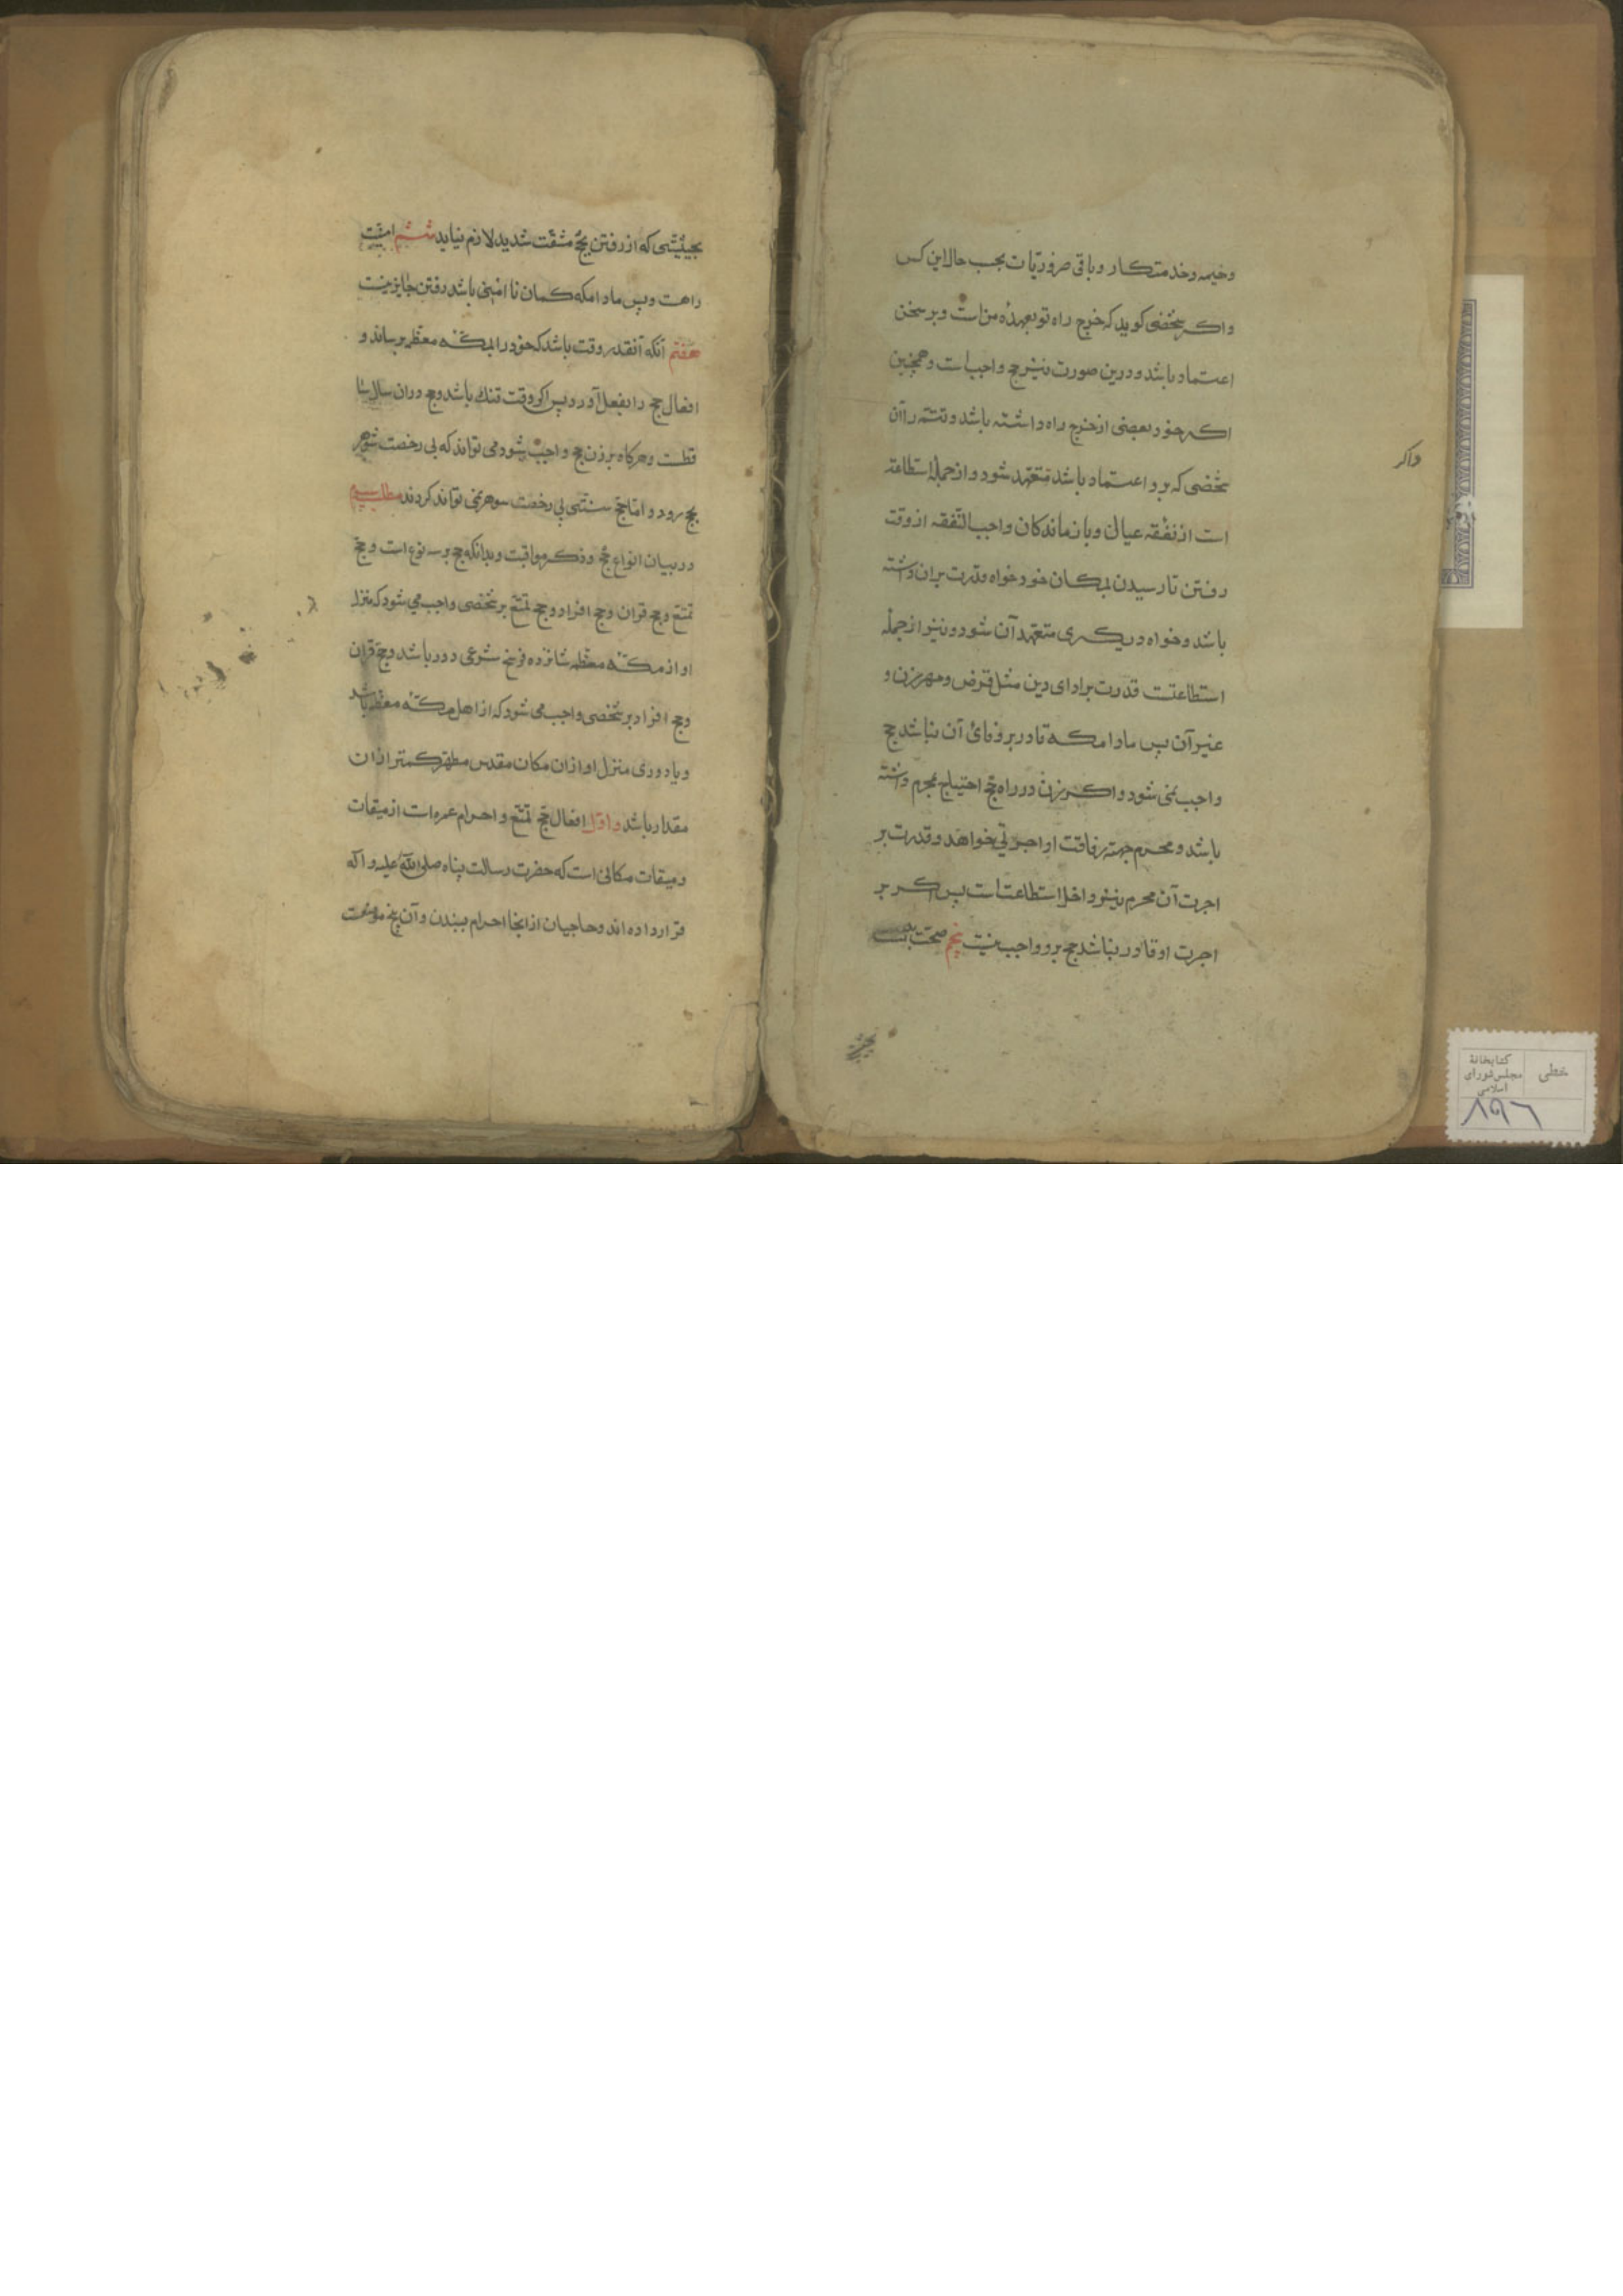 وخیمه وخدمتکار وباقی ضروریات بحسب حال این کس
واکر شخصی کوید که خرج راه تو بعهده من است وبر سخن
اعتماد باشد ودرین صورت نیز حج واجب است وهمچنین
اکر خود بعضی از خرج راه داشته باشد وتتمه را آن
شخصی که برو اعتماد باشد متعهد شود واز جمله استطاعة
است از نفقه عیال وبازماندکان واجب النفقه از وقت
رفتن تا رسیدن بمکان خود خواه قدرت بران داشته
باشد وخواه دیکری متعهد آن شود ونیز از جمله
استطاعتست قدرت بر ادای دین مثل قرض ومهر زن و
غیر آن پس مادامکه قادر بر وفائ آن نباشد حج
واجب نمی شود واکر زن در راه حج احتیاج بمحرم داشته
باشد ومحرم جهته رفاقت او اجرتی خواهد وقدرت بر
اجرت آن محرم نیز داخل استطاعت است پس اکر بر
اجرت او قادر نباشد حج برو واجب نیست پنجم صحت بدنست
واکر
بحیثیتی
بحیثیتی که از رفتن بحج مشقت شدید لازم نیاید ششم امنیت
راهست وپس مادامکه کمان نا امنی باشد رفتن جایز نیست
هفتم آنکه آنقدر وقت باشد که خود را بمکه معظمه برساند و
افعال حج را بفعل آورد پس اکر وقت تنک باشد وجوب دران سال سا
قطست وهرکاه بر زن حج واجب شود می تواند که بی رخصت شوهر
بحج رود واما حج سنتی بی رخصت شوهر نمی تواند کردند مطلب سیوم
در بیان انواع حج وذکر مواقیت وبدانکه حج بر سه نوع است وحج
تمتع وحج قران وحج افراد وحج تمتع بر شخصی واجب می شود که منزل
او از مکه معظمه شانزده فرسخ شرعی دور باشد وحج قران
وحج افراد بر شخصی واجب می شود که از اهل مکه معظمه باشد
ویا دوری منزل او ازان مکان مقدس مطهر کمتر ازان
مقدار باشد واول افعال حج تمتع واحرام عمره است از میقات
ومیقات مکانی است که حضرت رسالت پناه صلی الله علیه وآله
قرار داده اند وحاجیان از انجا احرام ببندن وآن پنج موضعست
خطی
کتابخانهٔ
مجلس شورای
اسلامی
۸۹۶